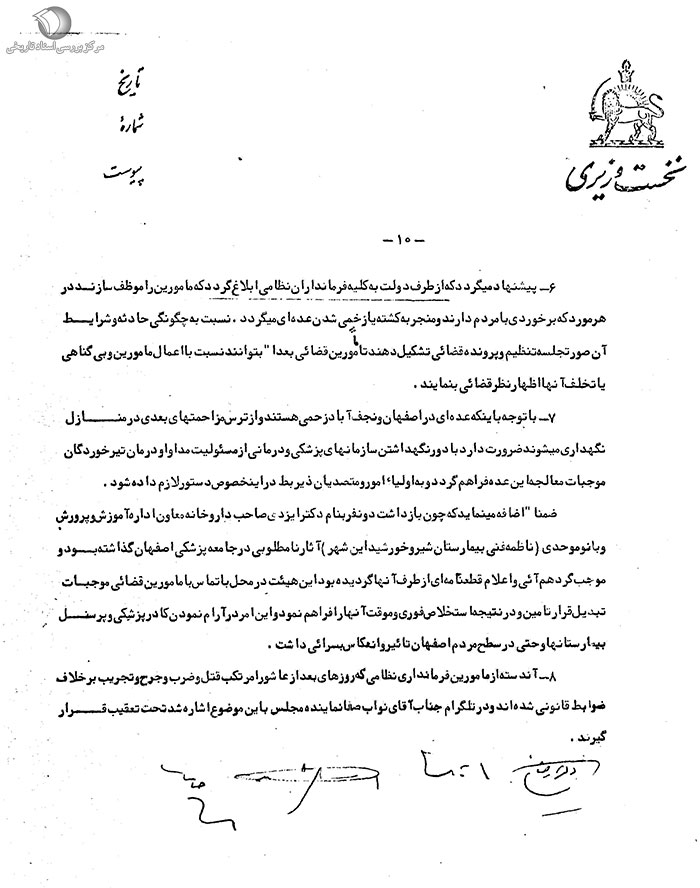 مرکز بررسی اسناد تاریخی
تاریخ
شماره
پیوست
نخست وزیری
- ۱۰ -
۶- پیشنهاد میگردد که از طرف دولت به کلیه فرمانداران نظامی ابلاغ گردد که مامورین را موظف سازند در
هر مورد که برخوردی با مردم دارند و منجر به کشته یا زخمی شدن عده ای میگردد ، نسبت به چگونگی حادثه و شرایط
آن صورتجلسه تنظیم و پرونده قضائی تشکیل دهند تا مامورین قضائی بعدا" بتوانند نسبت با اعمال مامورین و بی گناهی
یا تخلف آنها اظهار نظر قضائی بنمایند .
۷- با توجه باینکه عده ای در اصفهان و نجف آباد زخمی هستند و از ترس مزاحمتهای بعدی در منازل
نگهداری میشوند ضرورت دارد با دور نگهداشتن سازمانهای پزشکی و درمانی از مسئولیت مداوا و درمان تیرخوردگان
موجبات معالجه این عده فراهم گردد و به اولیاء امور و متصدیان ذیربط در اینخصوص دستور لازم داده شود .
ضمنا" اضافه مینماید که چون بازداشت دو نفر بنام دکتر ایزدی صاحب داروخانه معاون اداره آموزش و پرورش
و بانو موحدی ( ناظمه فنی بیمارستان شیر و خورشید این شهر ) آثار نامطلوبی در جامعه پزشکی اصفهان گذاشته بود و
موجب گردهم آئی و اعلام قطعنامه ای از طرف آنها گردیده بود این هیئت در محل با تماس با مامورین قضائی موجبات
تبدیل قرار تامین و در نتیجه استخلاص فوری و موقت آنها را فراهم نمود و این امر در آرام نمودن کادر پزشکی و پرسنل
بیمارستانها و حتی در سطح مردم اصفهان تاثیر و انعکاس بسزائی داشت .
۸- آندسته از مامورین فرمانداری نظامی که روزهای بعد از عاشورا مرتکب قتل و ضرب و جرح و تخریب بر خلاف
ضوابط قانونی شده اند و در تلگرام جناب آقای نواب صفا نماینده مجلس باین موضوع اشاره شد تحت تعقیب قرار
گیرند .